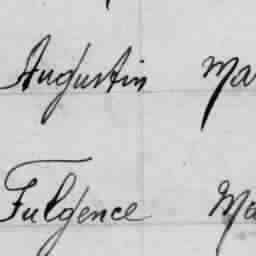 Augustin Ma
Fulgence Ma